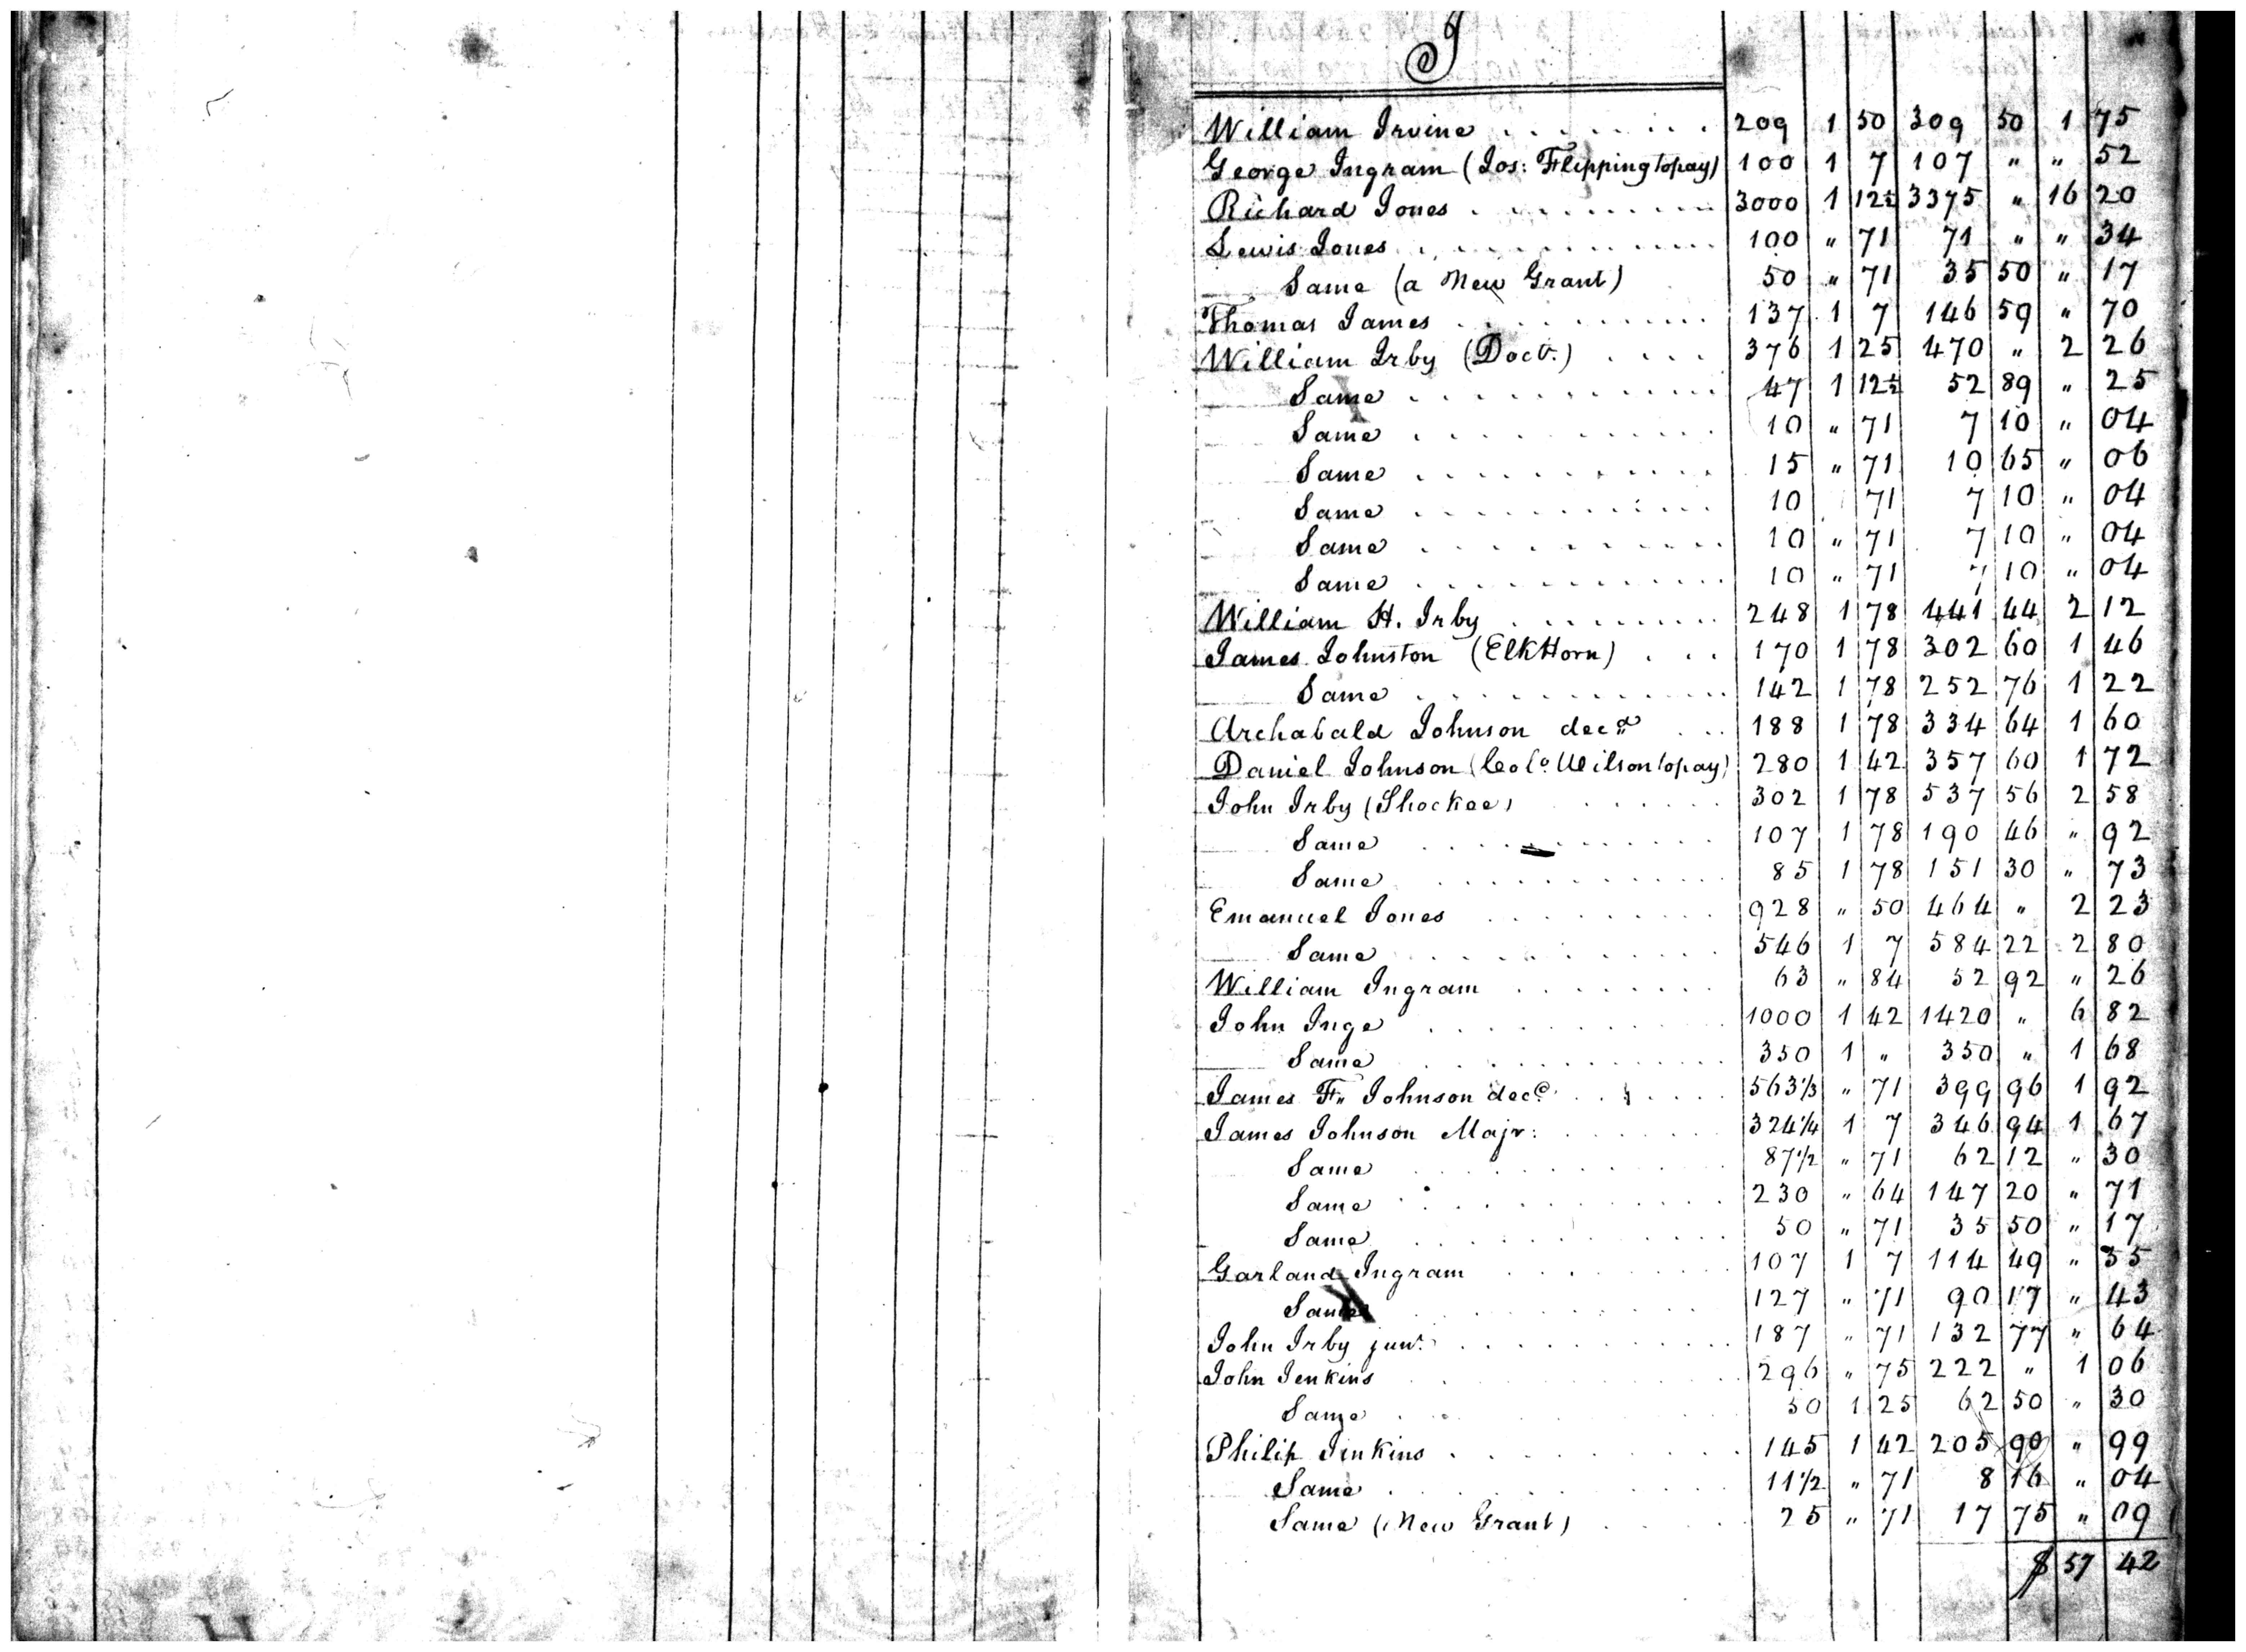 J
William Irvine 209 1 50 309 50 1 75
George Ingram (Jos: Flipping to pay) 100 1 7 107 " " 52
Richard Jones 3000 1 12½ 3375 " 16 20
Lewis Jones 100 " 71 71 " " 34
Same (a New Grant) 50 " 71 35 50 " 17
Thomas James 137 1 7 146 59 " 70
William Irby (Doct.) 376 1 25 470 " 2 26
Same 47 1 12½ 52 89 " 25
Same 10 " 71 7 10 " 04
Same 15 " 71 10 65 " 06
Same 10 71 7 10 " 04
Same 10 " 71 7 10 " 04
Same 10 " 71 7 10 " 04
William H. Irby 248 1 78 441 44 2 12
James Johnston (Elk Horn) 170 1 78 302 60 1 46
Same 142 1 78 252 76 1 22
Archabald Johnson decd 188 1 78 334 64 1 60
Daniel Johnson (Colo. Wilson to pay) 280 1 42 357 60 1 72
John Irby (Shockoe) 302 1 78 537 56 2 58
Same 107 1 78 190 46 " 92
Same 85 1 78 151 30 " 73
Emanuel Jones 928 " 50 464 " 2 23
Same 546 1 7 584 22 2 80
William Ingram 63 " 84 52 92 " 26
John Inge 1000 1 42 1420 " 6 82
Same 350 1 " 350 " 1 68
James F. Johnson decd. 563⅓ " 71 399 96 1 92
James Johnson Majr: 324¼ 1 7 346 94 1 67
Same 87½ " 71 62 12 " 30
Same 230 " 64 147 20 " 71
Same 50 " 71 35 50 " 17
Garland Ingram 107 1 7 114 49 " 55
Same 127 " 71 90 17 " 43
John Irby junr. 187 " 71 132 77 " 64
John Jenkins 296 " 75 222 " 1 06
Same 50 1 25 62 50 " 30
Philip Jenkins 145 1 42 205 90 " 99
Same 11½ " 71 8 16 " 04
Same (New Grant) 25 " 71 17 75 " 09
$ 57 42